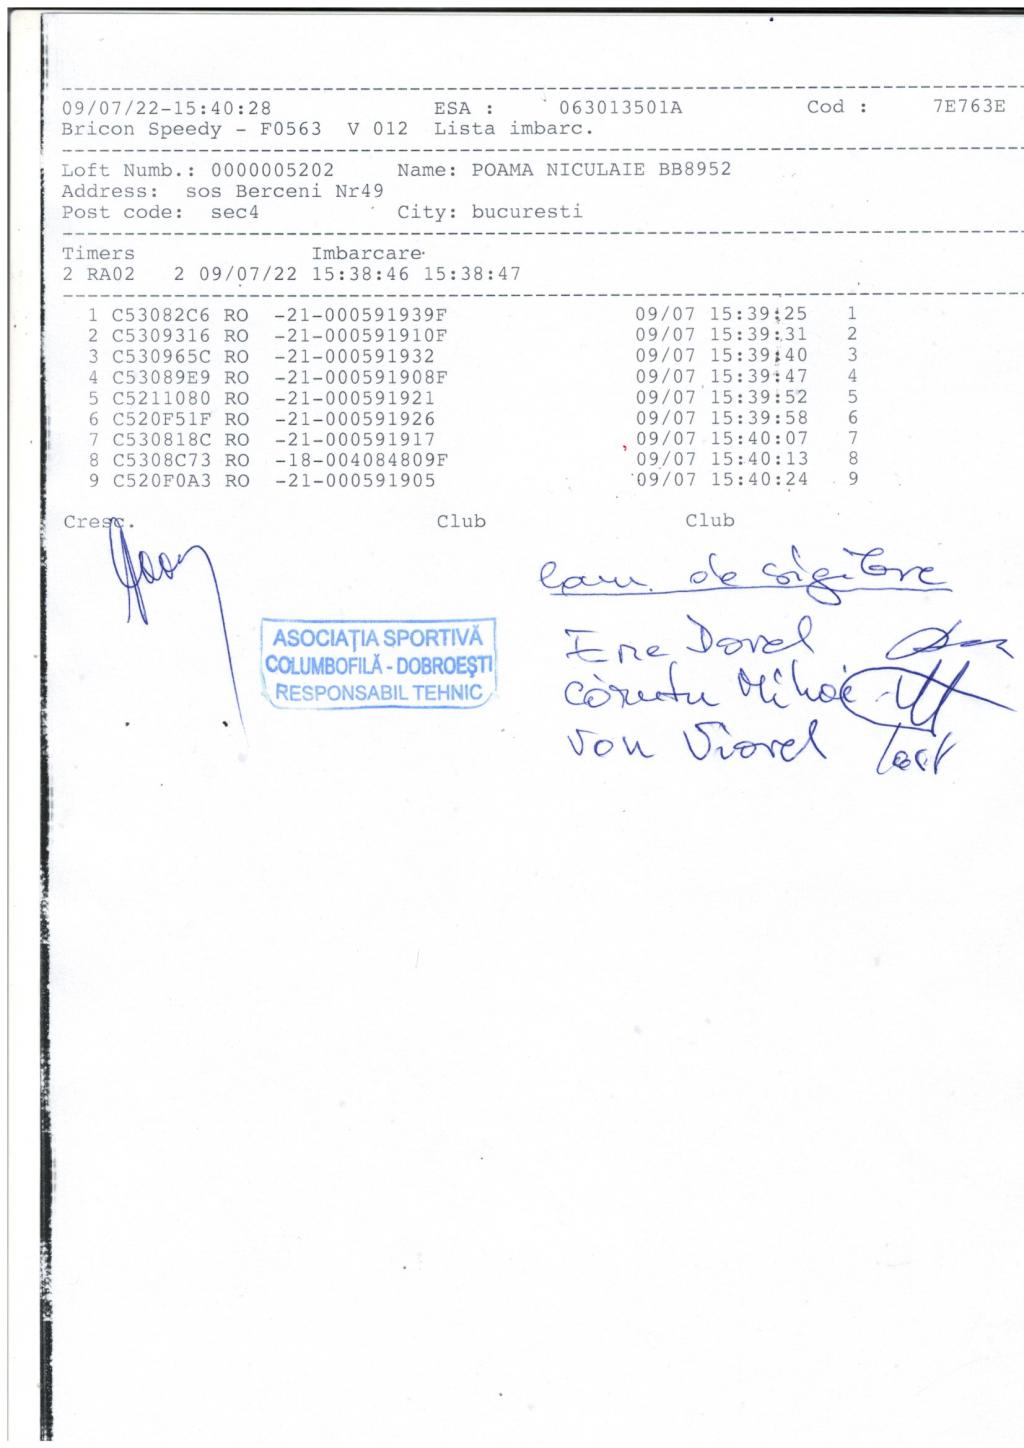 09/07/22-15:40:28 ESA : 063013501A Cod : 7E763E
Bricon Speedy - F0563 V 012 Lista imbarc.
Loft Numb.: 0000005202 Name: POAMA NICULAIE BB8952
Address: sos Berceni Nr49
Post code: sec4 City: bucuresti
Timers Imbarcare
2 RA02 2 09/07/22 15:38:46 15:38:47
1 C53082C6 RO -21-000591939F 09/07 15:39:25 1
2 C5309316 RO -21-000591910F 09/07 15:39:31 2
3 C530965C RO -21-000591932 09/07 15:39:40 3
4 C53089E9 RO -21-000591908F 09/07 15:39:47 4
5 C5211080 RO -21-000591921 09/07 15:39:52 5
6 C520F51F RO -21-000591926 09/07 15:39:58 6
7 C530818C RO -21-000591917 09/07 15:40:07 7
8 C5308C73 RO -18-004084809F 09/07 15:40:13 8
9 C520F0A3 RO -21-000591905 09/07 15:40:24 9
Cresc. Club Club
de
ASOCIAȚIA SPORTIVĂ
COLUMBOFILĂ - DOBROEȘTI
RESPONSABIL TEHNIC
Ene Dorel
Mihai
Viorel